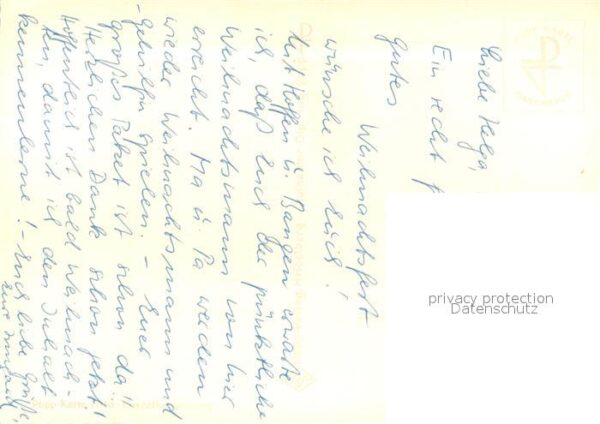 Liebe Helga,
Ein recht
gutes
Weihnachtsfest
wünsche ich Euch!
Mit Hoffen u. Bangen
ich, daß Euch der pünktliche
Weihnachtsmann von hier
erreicht. Ma u. Pa werden
wieder Weihnachtsmann und
-gehilfin spielen. - Euer
großes Paket ist schon da,
Herzlichen Dank schon jetzt!
Hoffentlich ist bald Weihnach-
ten, damit ich den Inhalt
kennenlerne! - Euch liebe Grüße,
Eure
privacy protection
Datenschutz